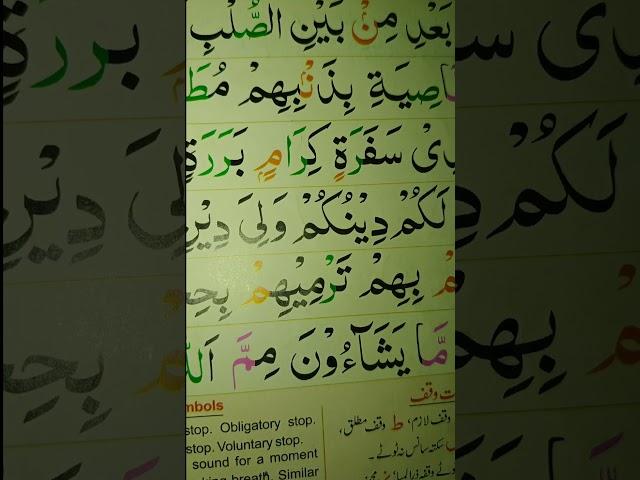 بَعْدِ مِنْ بَيْنِ الصُّلْبِ
اصِيَةِ بِذَنْبِهِمْ مُطَ
دِیْ سَفَرَةٍ كِرَامٍ بَرَرَةٍ
لَكُمْ دِيْنُكُمْ وَلِیَ دِيْنِ
مْ بِهِمْ تَرْمِيْهِمْ بِحِ
مَّا يَشَآءُوْنَ مِمَّ اَللّٰ
ت وقف
وقف لازم، ط وقف مطلق،
سکتہ سانس نہ ٹوٹے۔
mbols
stop. Obligatory stop.
stop. Voluntary stop.
sound for a moment
king breath. Similar